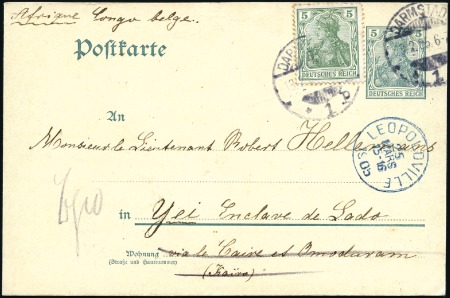 Afrique Congo belge..
Postkarte
5 5
DEUTSCHES REICH DEUTSCHES REICH
DARMSTADT
1
An
Monsieur le Lieutenant Robert Hellemans
LEOPOLDVILLE
25
MARS
5-16
in Yei Enclave de Lado
Wohnung via le Caire et Omoduram
(Straße und Hausnummer)
(Kaïro)